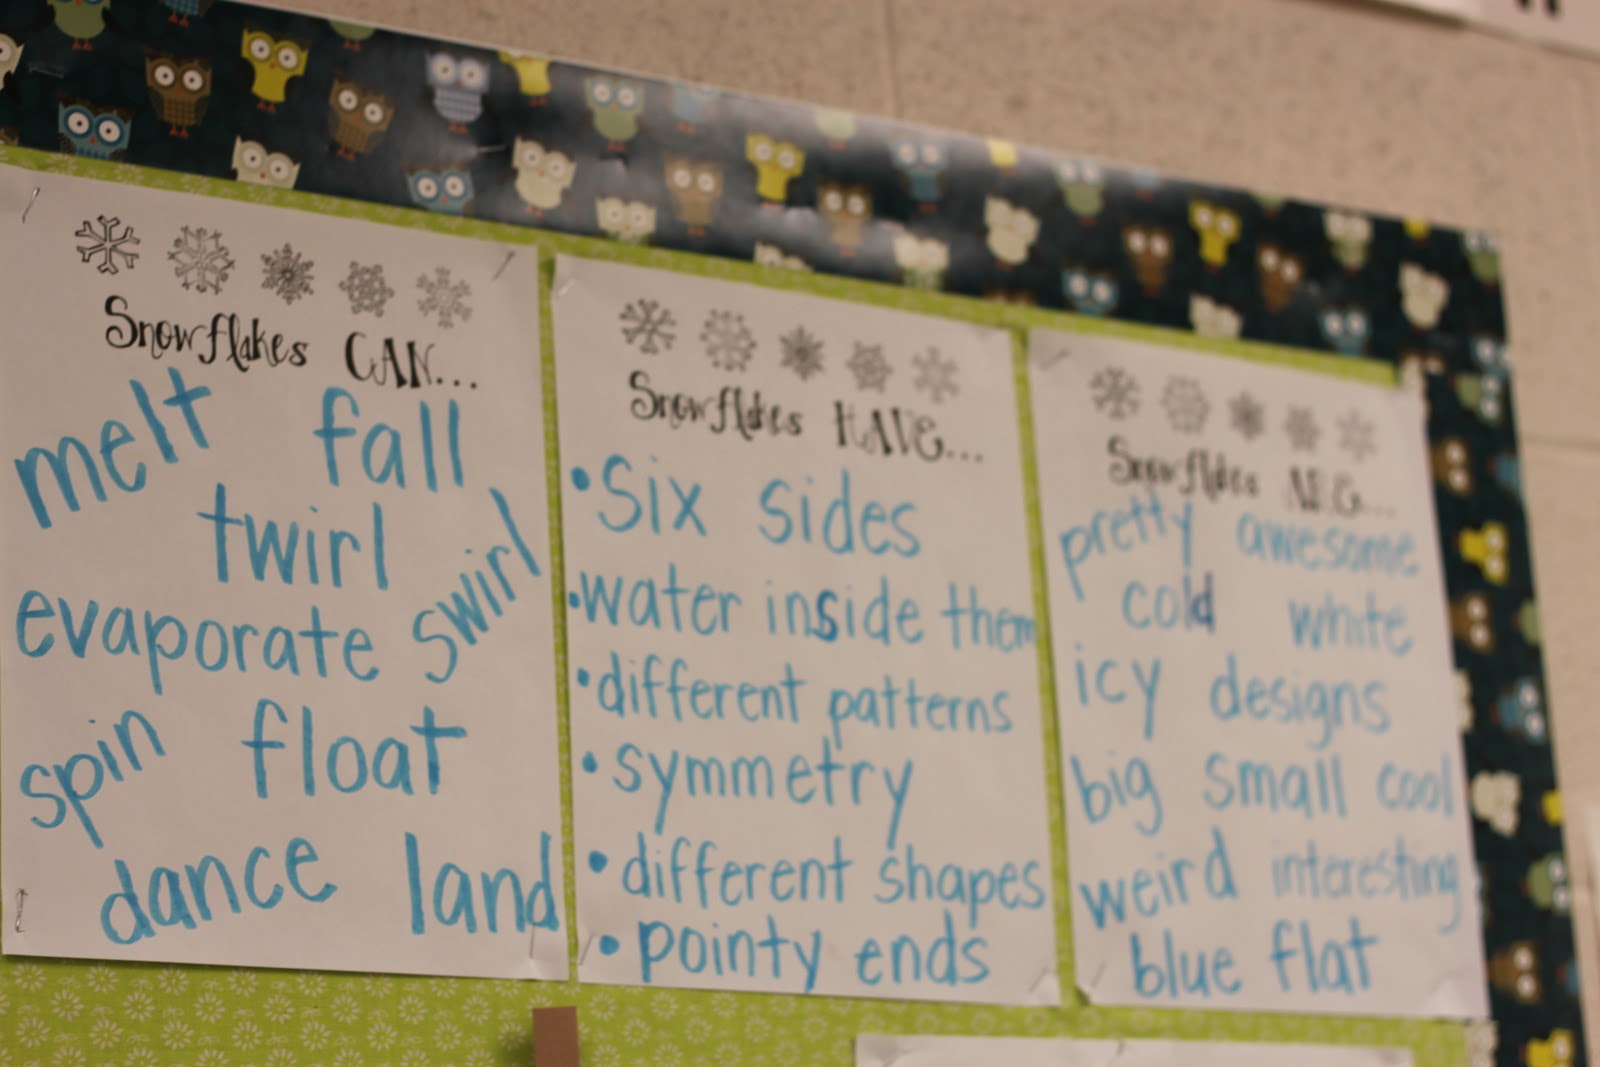 Snowflakes CAN...
melt fall
twirl
evaporate swirl
spin float
dance land
Snowflakes HAVE...
• Six sides
• water inside them
• different patterns
• symmetry
• different shapes
• pointy ends
Snowflakes ARE...
pretty awesome
cold white
icy designs
big small cool
weird interesting
blue flat